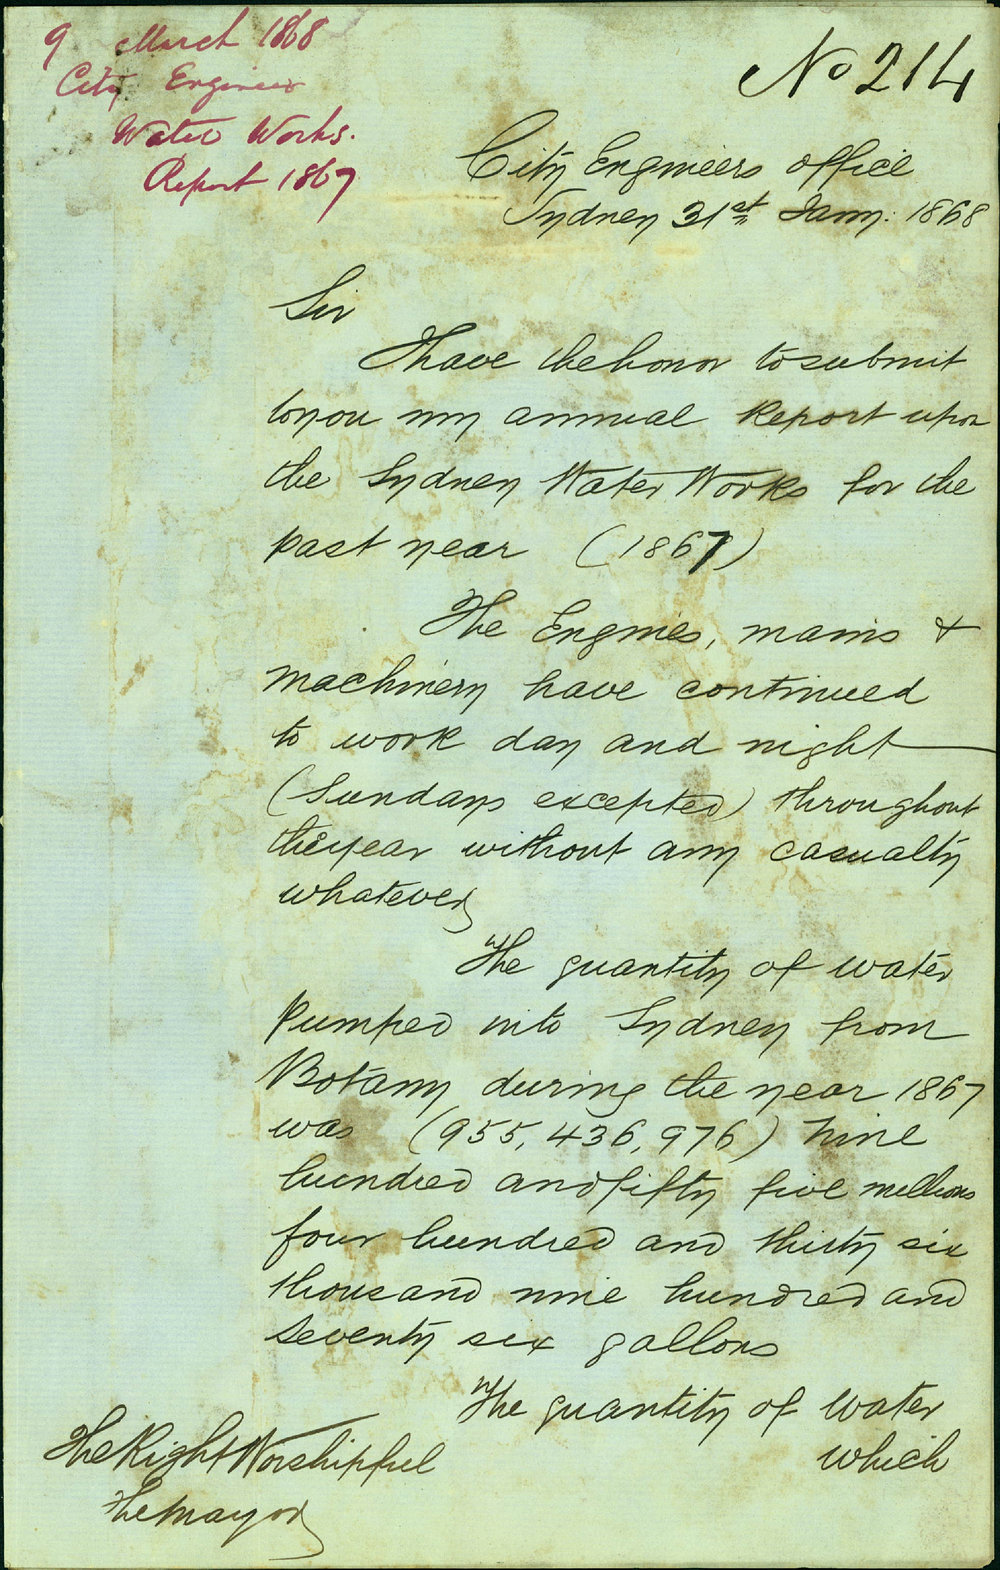 9 March 1868
City Engineer
Water Works.
Report 1867
No 214
City Engineers office
Sydney 31st Jany. 1868
Sir
I have the honor to submit
to you my annual Report upon
the Sydney Water Works for the
past year (1867)
The Engines, mains &
machinery have continued
to work day and night
(Sundays excepted) throughout
the year without any casualty
whatever
The quantity of water
pumped into Sydney from
Botany during the year 1867
was (955,436,976) Nine
hundred and fifty five millions
four hundred and thirty six
thousand nine hundred and
seventy six gallons
The quantity of water
which
The Right Worshipful
The Mayor